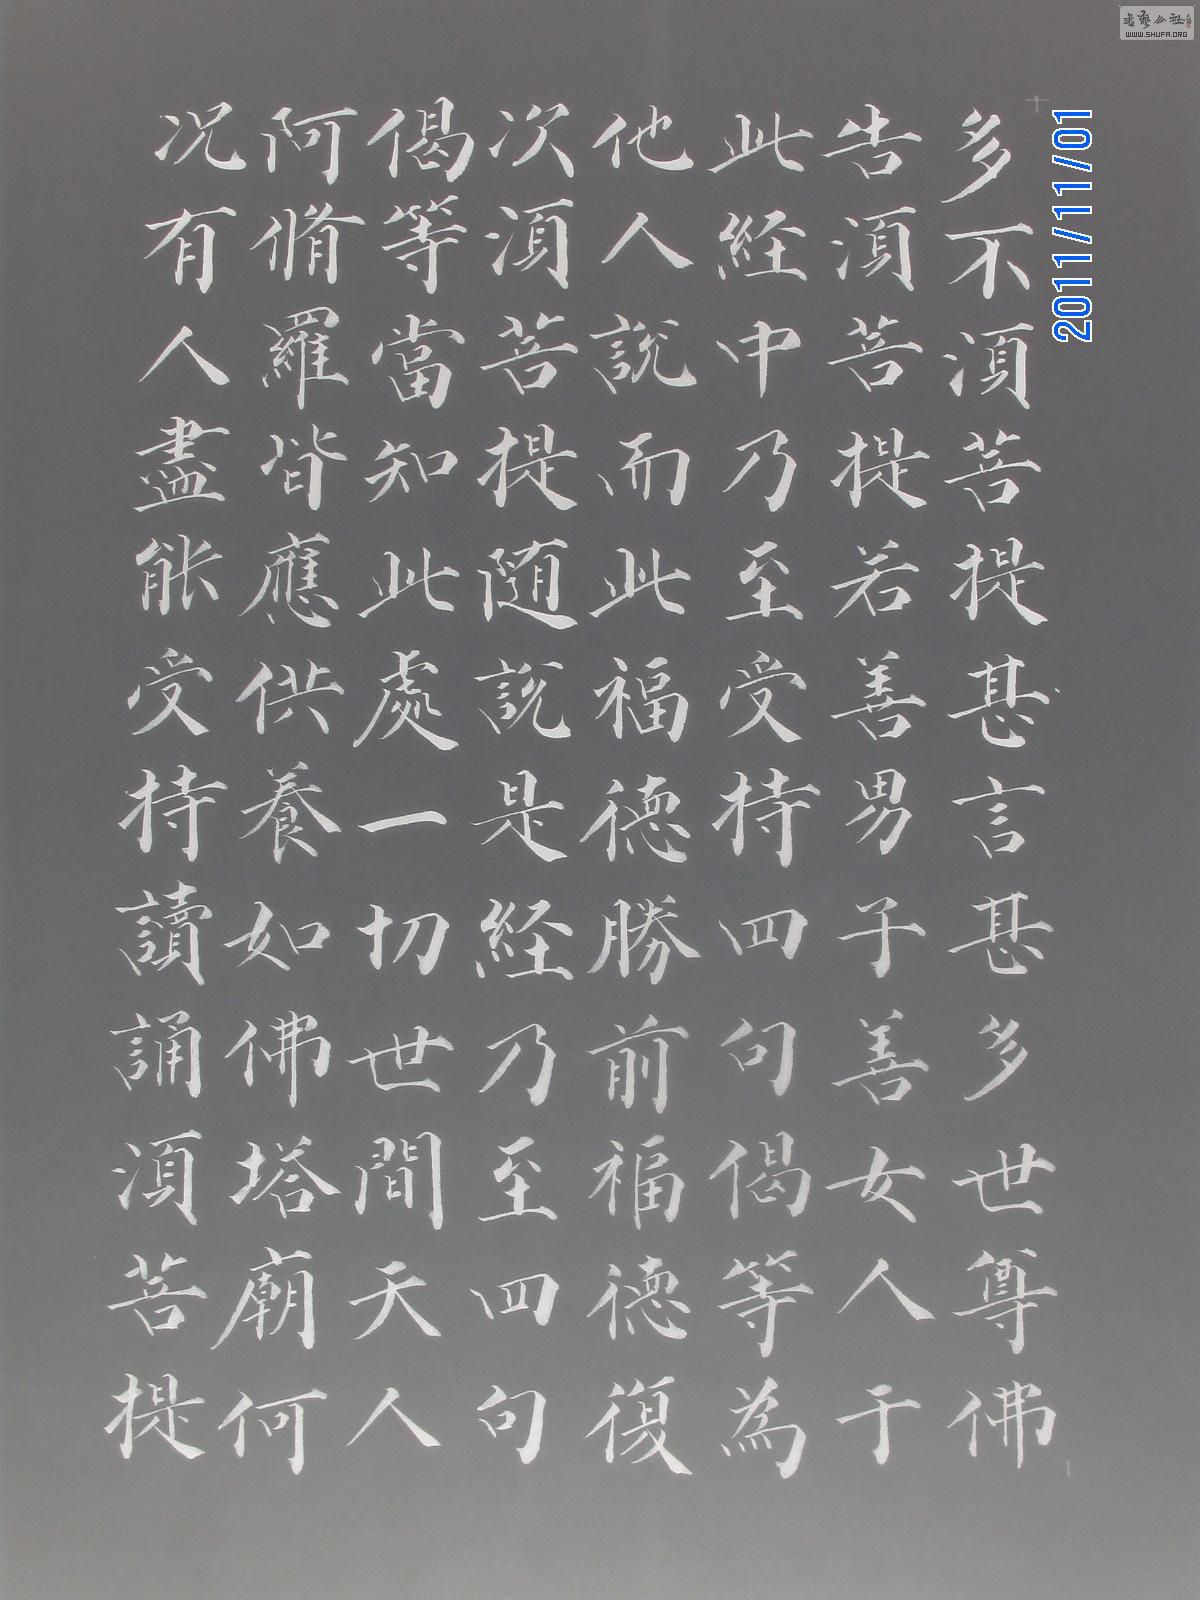 多不須菩提甚言甚多世尊佛
告須菩提若善男子善女人于
此経中乃至受持四句偈等為
他人說而此福德勝前福德復
次須菩提随說是経乃至四句
偈等當知此處一切世間天人
阿脩羅皆應供養如佛塔廟何
況有人盡能受持讀誦須菩提
2011/11/01
書藝公社
WWW.SHUFA.ORG